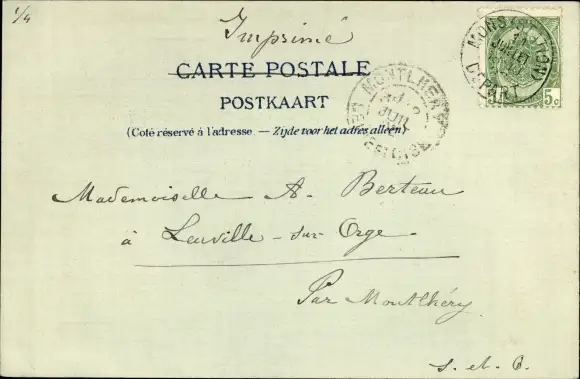 1/4
Imprimé
CARTE POSTALE
POSTKAART
(Coté réservé à l'adresse. — Zijde voor het adres alleen)
MONS (STATION)
JUILLET
DEPART
5c
MONTLHERY
JUIL
Mademoiselle A. Berteau
à Leuville-sur-Orge
Par Montlhéry
S. et O.